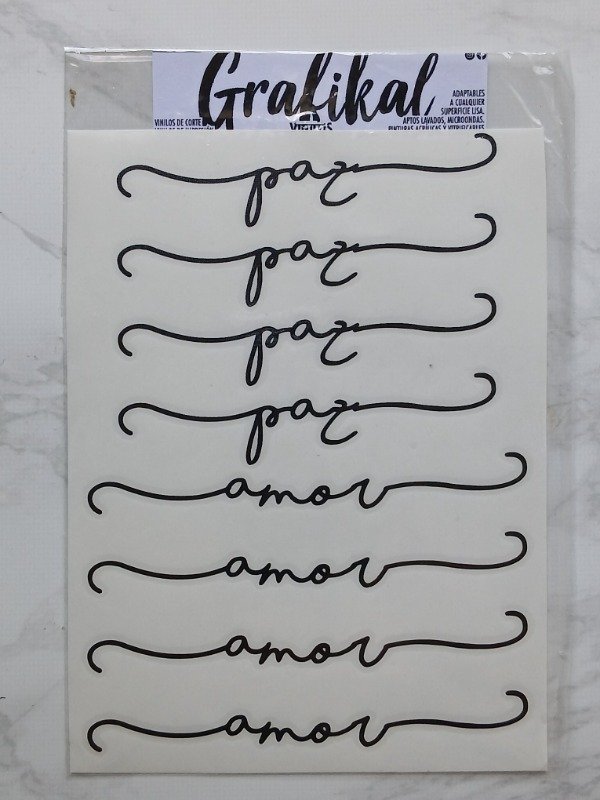 Grafikal
ADAPTABLES
A CUALQUIER
SUPERFICIE LISA,
VINILOS DE CORTE
APTOS LAVADOS, MICROONDAS.
VINILOS
PINTURAS ACRILICAS Y VITRIFICABLES
paz
paz
paz
paz
amor
amor
amor
amor